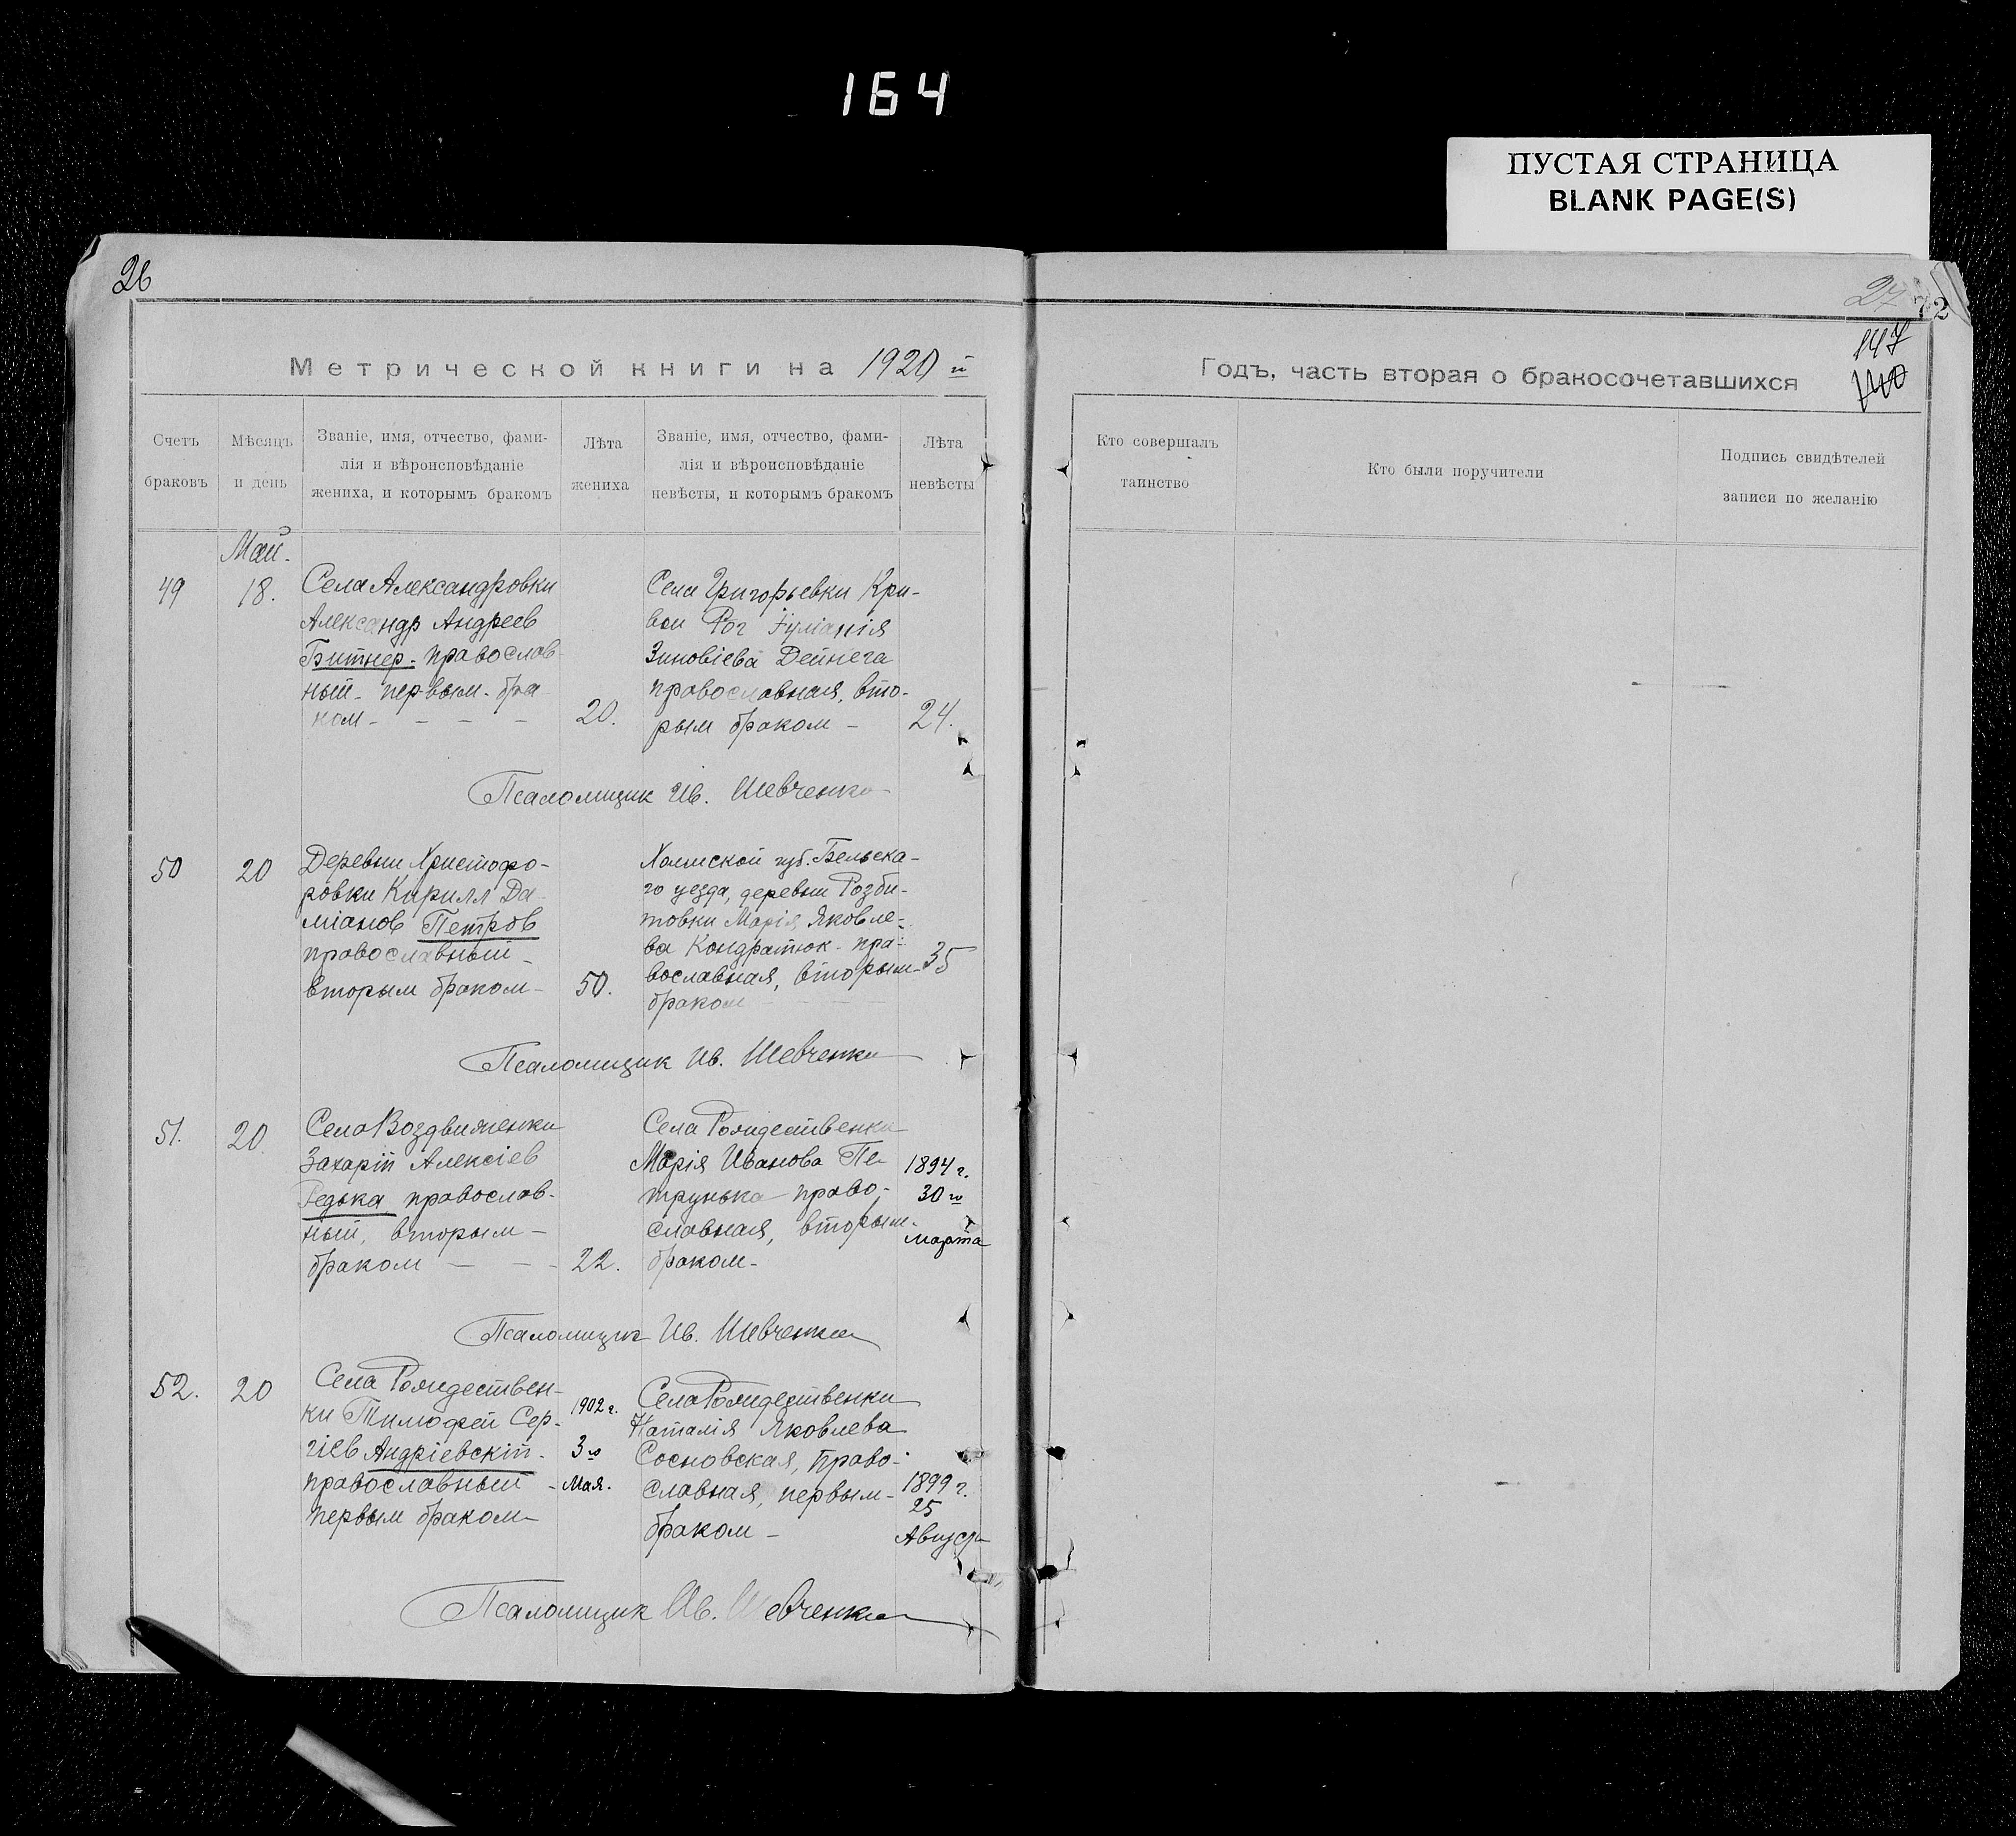 164
ПУСТАЯ СТРАНИЦА
BLANK PAGE(S)
26
27
72
147
140
Метрической книги на 1920 й
Годъ, часть вторая о бракосочетавшихся
Счетъ браковъ
Мѣсяцъ и день
Званіе, имя, отчество, фами-
лія и вѣроисповѣданіе
жениха, и которымъ бракомъ
Лѣта жениха
Званіе, имя, отчество, фами-
лія и вѣроисповѣданіе
невѣсты, и которымъ бракомъ
Лѣта невѣсты
Кто совершалъ таинство
Кто были поручители
Подпись свидѣтелей
записи по желанію
Май.
49
18.
Села Александровки
Александр Андреев
Битнер. православ-
ный первым бра-
ком
20.
Села Григорьевки Кри-
вой Рог Іуліанія
Зиновіева Дейнега
православная, вто-
рым браком
24.
Псаломщик Ив. Шевченко
50
20
Деревни Христофо-
ровки Кирилл Да-
міанов Петров
православный
вторым браком
50.
Холмской губ. Бельска-
го уезда, деревни Розби-
товки Марія Яковле-
ва Кондратюк пра-
вославная, вторым
браком
35
Псаломщик Ив. Шевченко
51.
20
Села Воздвиженки
Захарій Алексіев
Редька православ-
ный, вторым
браком
22.
Села Рождественки
Марія Иванова Пе-
трунька право-
славная, вторым
браком
1894 г.
30 го
Марта
Псаломщик Ив. Шевченко
52.
20
Села Рождествен-
ки Тимофей Сер-
гіев Андріевскій
православный
первым браком
1902 г.
3 го
Мая.
Села Рождественки
Наталія Яковлева
Сосновская, право-
славная, первым
браком
1899 г.
25
Август
Псаломщик Ив. Шевченко